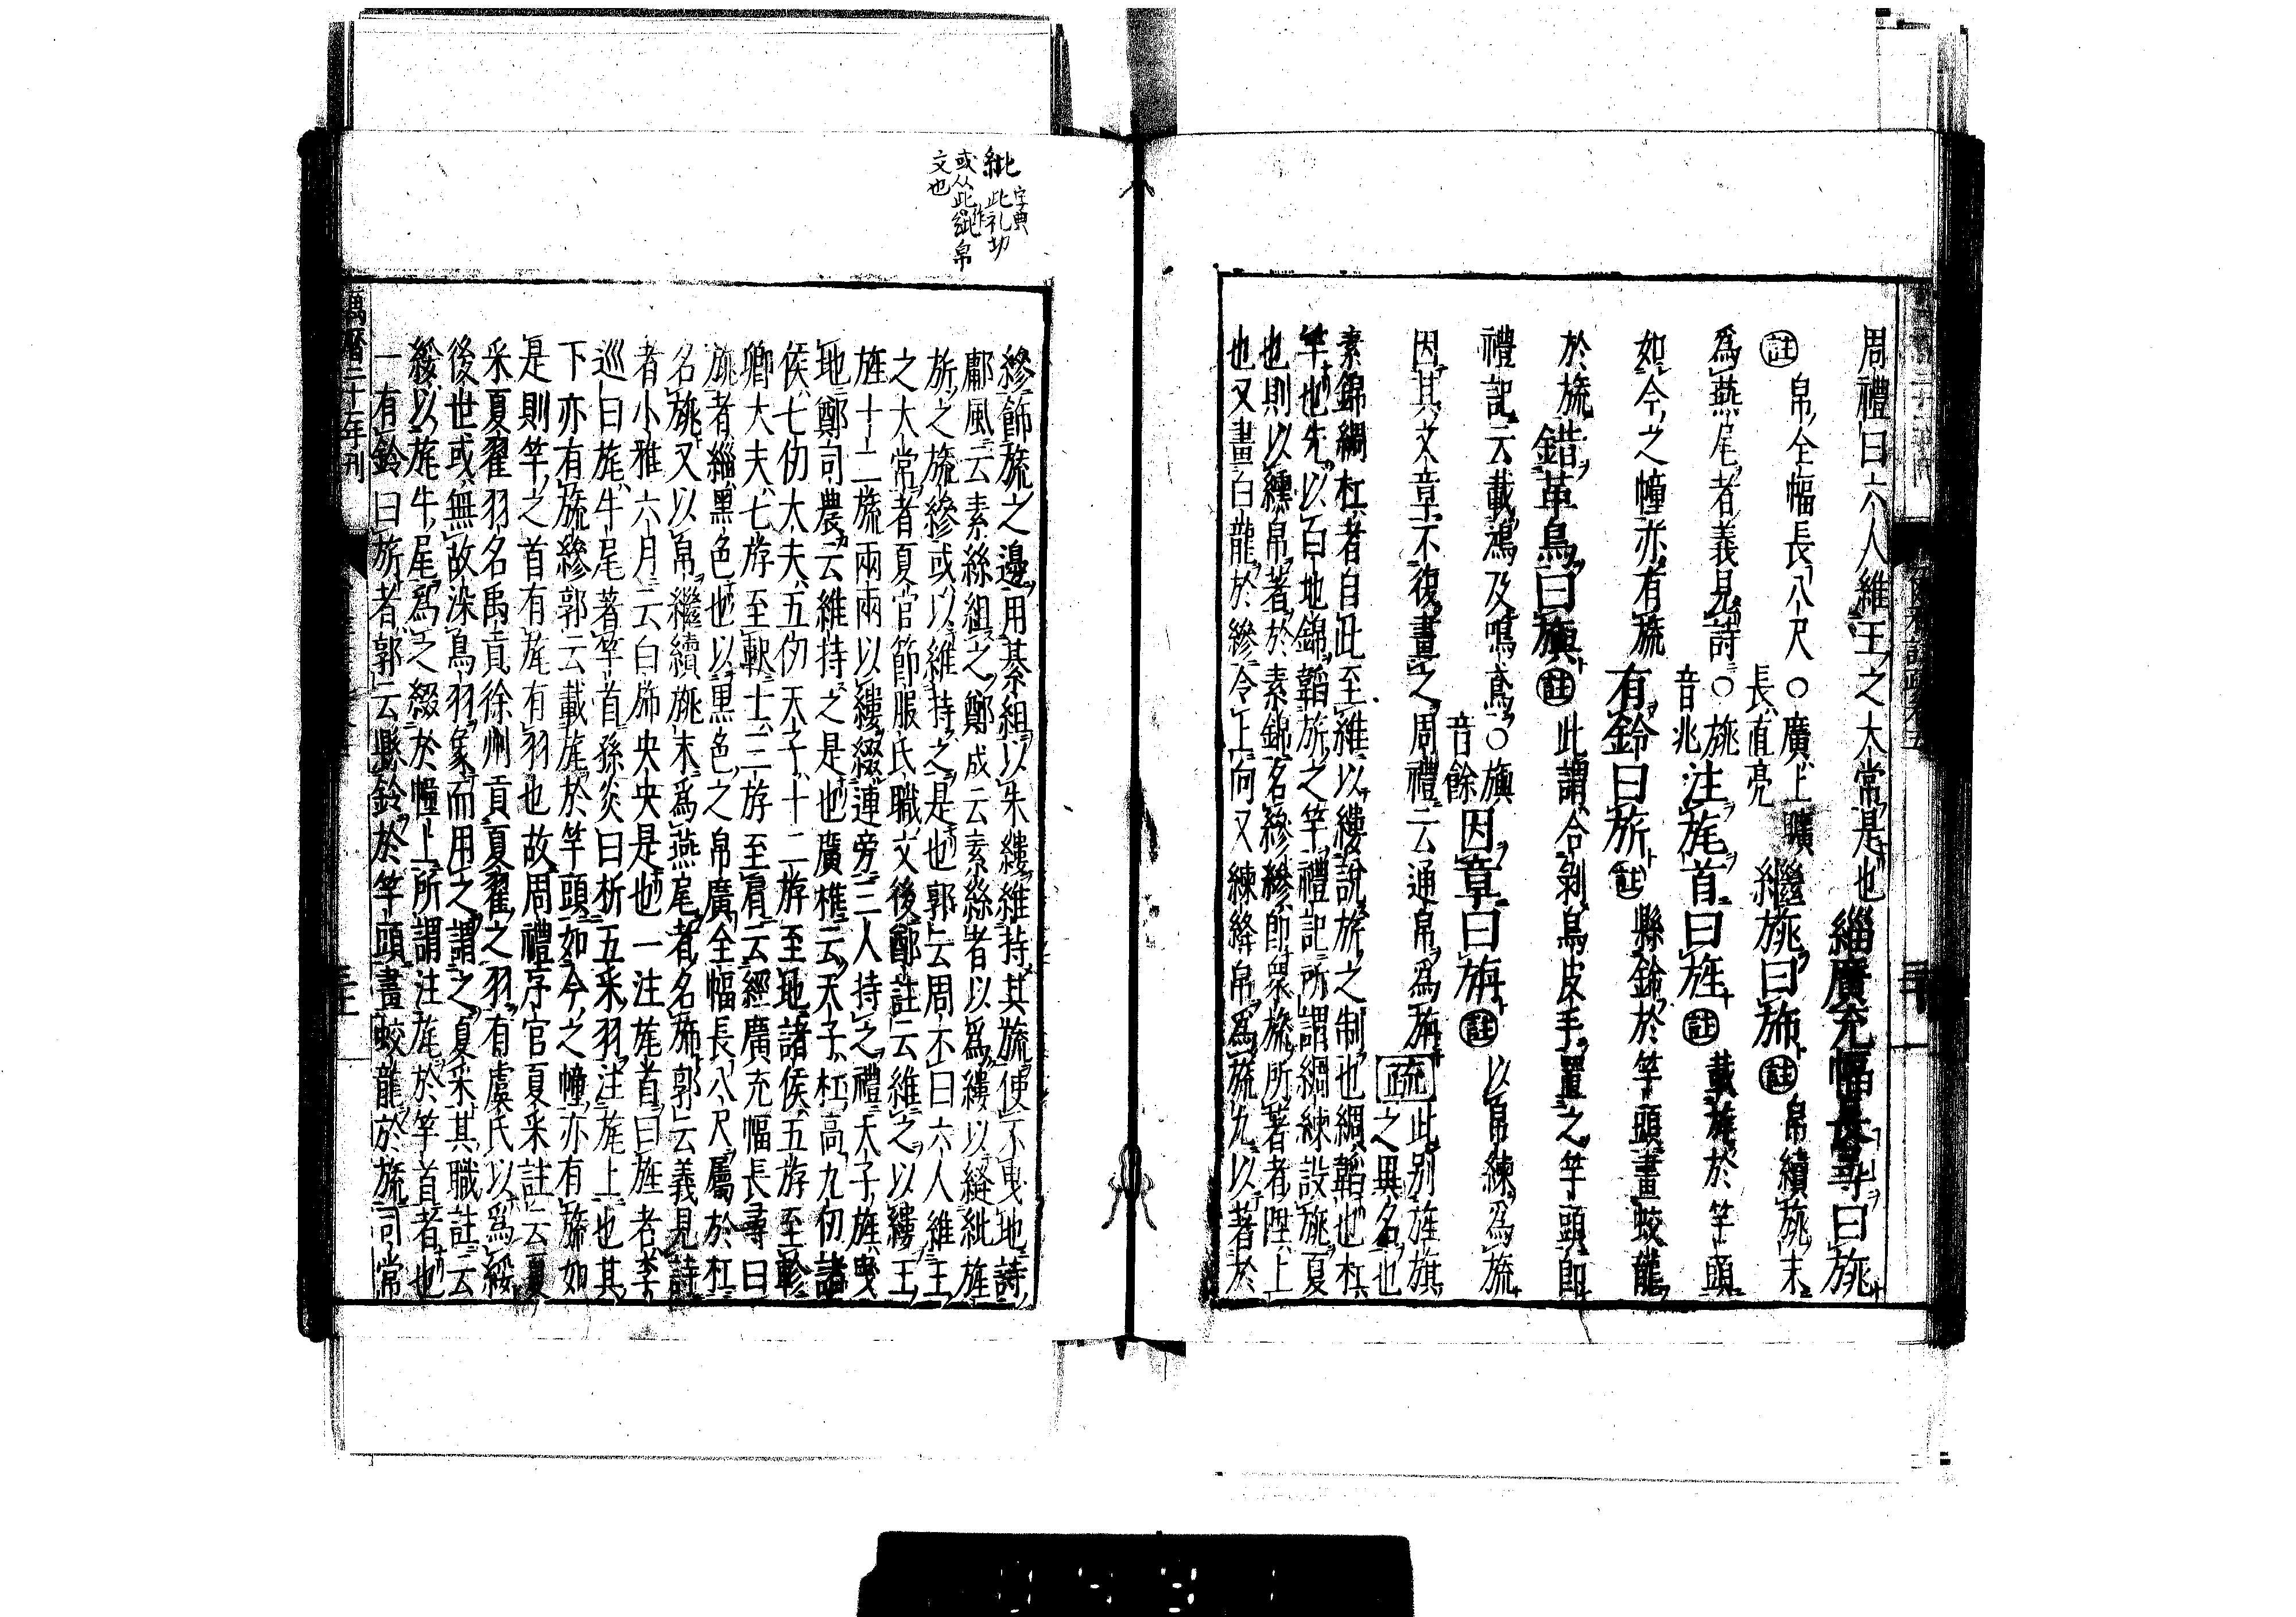 周禮曰六人維王之大常是也緇廣充幅長尋曰旐
註帛全幅長八尺○廣上曠長直亮繼旐曰旆註帛續旐末
爲燕尾者義見詩○旐音兆注旄首曰旌註載旄於竿頭
如今之幢亦有旒有鈴曰旂註縣鈴於竿頭畫蛟龍
於旒錯革鳥曰旟註此謂合剝鳥皮毛置之竿頭卽
禮記云載鴻及鳴鳶○旟音餘因章曰旃註以帛練爲旒
因其文章不復畫之周禮云通帛爲旃疏此别旌旗之異名也
素錦綢杠者自此至維以縷說旂之制也綢韜也杠
竿也先以白地錦韜旂之竿禮記所謂綢練設旐夏
也則以纁帛著於素錦名縿縿卽衆旒所著者陞上
也又畫白龍於縿令上向又練絳帛爲旒九以著於
紕 字典此礼切
或从此作紕帛
文也
縿飾旒之邊用綦組以朱縷維持其旒使不曳地詩
鄘風云素絲組之鄭成云素絲者以爲縷以縫紕旌
旂之旒縿或以維持之是也郭云周禮曰六人維王
之大常者夏官節服氏職文後鄭註云維之以縷王
旌十二旒兩兩以縷綴連旁三人持之禮天子旌曳
地鄭司農云維持之是也廣雅云天子杠高九仞諸
侯七仞大夫五仞天子十二斿至地諸侯五斿至軫
卿大夫七斿至軹士三斿至肩云緇廣充幅長尋曰
旐者緇黑色也以黒色之帛廣全幅長八尺屬於杠
名旐又以帛繼續旐末爲燕尾者名旆郭云義見詩
者小雅六月云白旆央央是也一注旄首曰旌者李
巡曰旄牛尾著竿首孫炎曰析五采羽注旄上也其
下亦有旒縿郭云載旄於竿頭如今之幢亦有旒如
是則竿之首有旄有羽也故周禮序官夏采註云夏
采夏翟羽名禹貢徐州貢夏翟之羽有虞氏以爲綏
後世或無故染鳥羽象而用之謂之夏采其職註云
綏以旄牛尾爲之綴於幢上所謂注旄於竿首者也
一有鈴曰旂者郭云縣鈴於竿頭畫蛟龍於旒司常
萬曆二十年刊